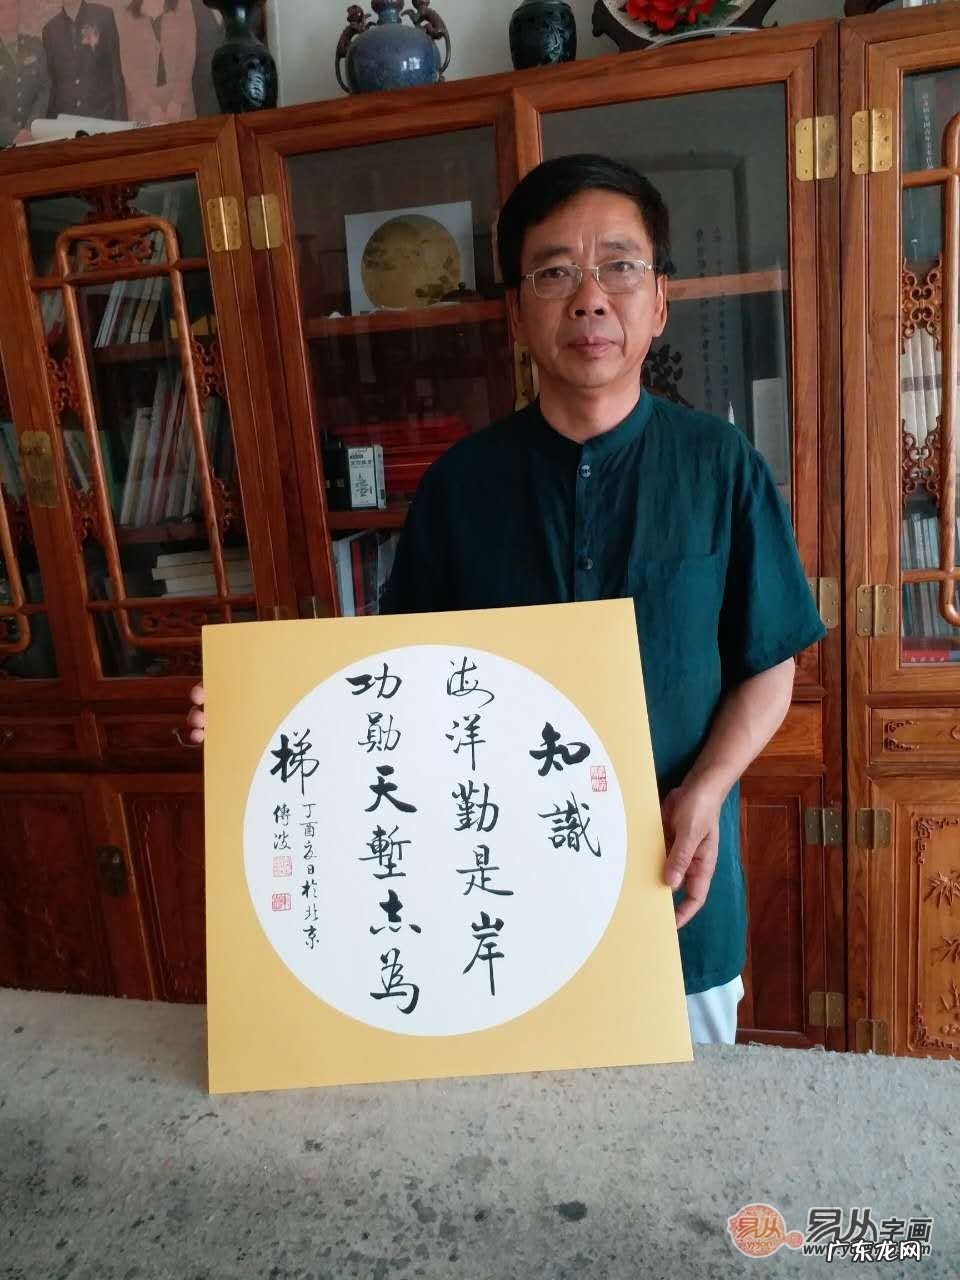 知識
海洋勤是岸
功勛天塹志為
梯
丁酉夏日於北京
傳波
易从字画
广东龙网